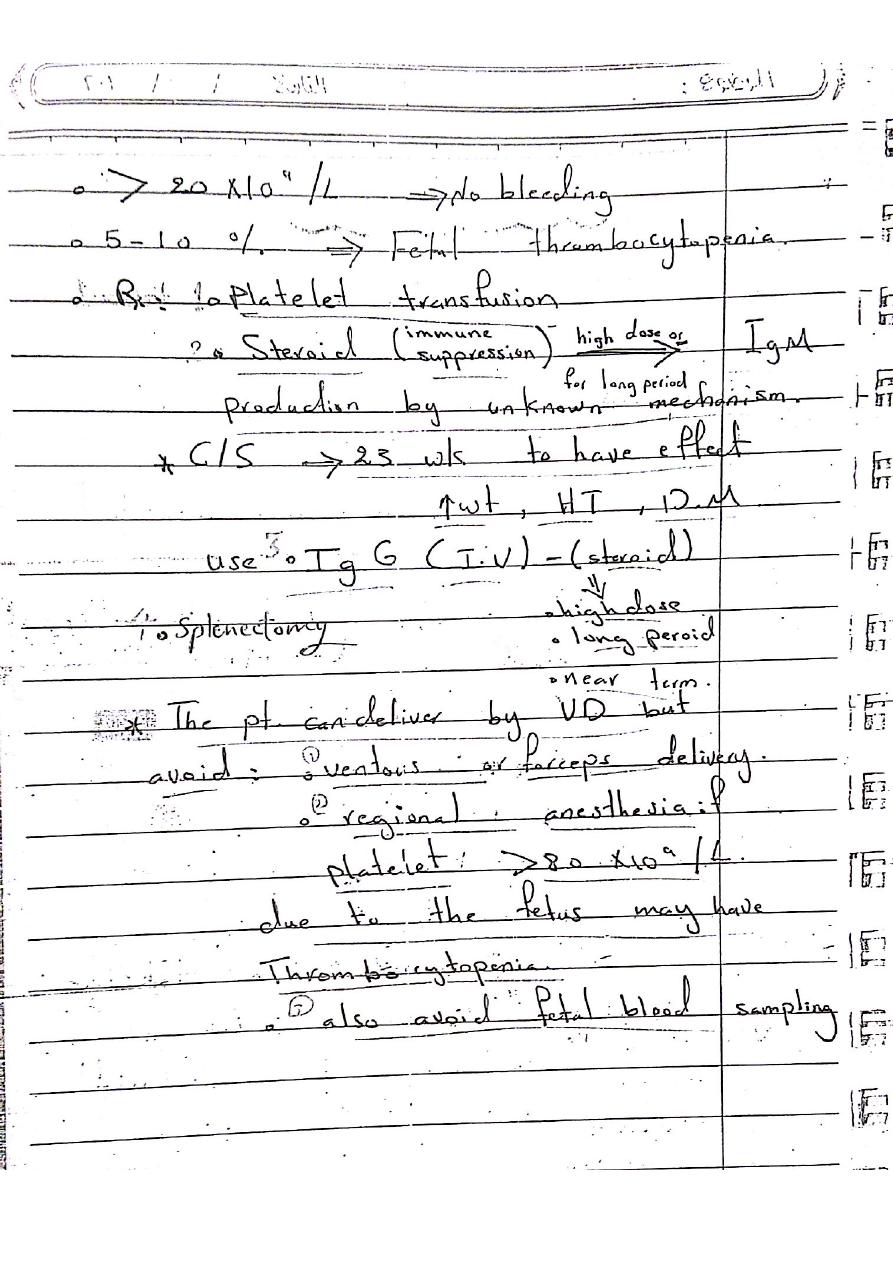 الموضوع : التاريخ / / ٢٠١
> 20 X10⁹ /L ⇒ No bleeding
5-10 % ⇒ Fetal thrombocytopenia.
R: 1. Platelet transfusion
2. Steroid (immune suppression) high dose or for long period → IgM
production by unknown mechanism.
* C/S → 23 wks to have effect
↑wt, HT, D.M
use 3. IgG (I.V) - (steroid)
⇓
4. Splenectomy • high dose
• long peroid
• near term.
* The pt can deliver by VD but
avoid : ① ventous or forceps delivery.
② regional anesthesia if
platelet : >80 X10⁹ /L.
due to the fetus may have
Thrombocytopenia
③ also avoid fetal blood sampling